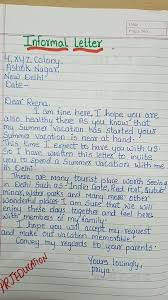 Informal Letter
4, XYZ Colony,
Ashok Nagar,
New Delhi
Date-
Dear Reena,
I am fine here, I hope you are
also healthy there As you know that
my Summer Vacation has started your
Summer vacation is near at hand.
This time I expect to have you with us.
So I have written this letter to invite
you to spend a Summer Vacation with me
in Delhi.
There are many tourist place worth Seeing
in Delhi Such as India Gate, Red fort, Qutub
minar, water parks and many more other
wonderful places I am sure that we will
enjoy these days together and feel here
with members of my family.
I hope you will accept my request
and make our vacation memorable.
Convey my regards to your parents.
Yours lovingly,
Priya
PRIEDUCATION